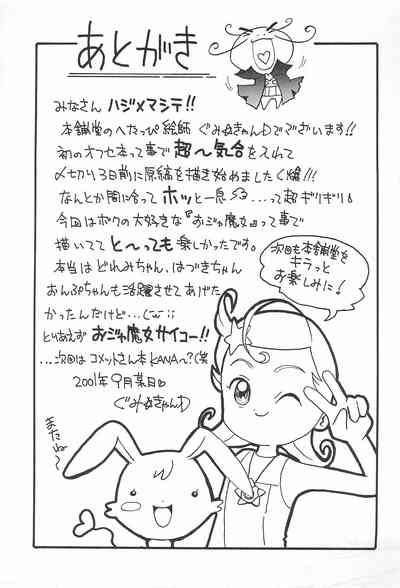 あとがき
みなさん ハジメマシテ!!
本舗堂のへたっぴ絵師 ぐみきゃんDでございます!!
初のオフセ本って事で 超〜気合を入れて
〆切り3日前に原稿を描き始めました(爆)!!
なんとか間に合って ホッと一息 ...って超ギリギリ!
今回はボクの大好きな『おジャ魔女』って事で
描いてて と〜っても 楽しかったです。
本当は どれみちゃん、はづきちゃん
おんぷちゃんも活躍させてあげた
かったんだけど...
とりあえず おジャ魔女サイコー!!
...次回は コメットさん本KANA〜?(笑
2001年 9月某日
ぐみきゃんD
次回も本舗堂を
キラっと
お楽しみに!
またね〜